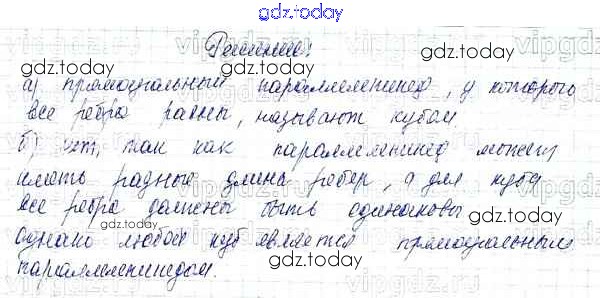 gdz.today
Решение:
а) прямоугольный параллелепипед, у которого
все ребра равны, называют кубом
б) нет, так как параллелепипед может
иметь разные длина ребер, а для куба
все ребра должены быть одинаковы
Однако любой куб является прямоугольным
параллелепипедом.